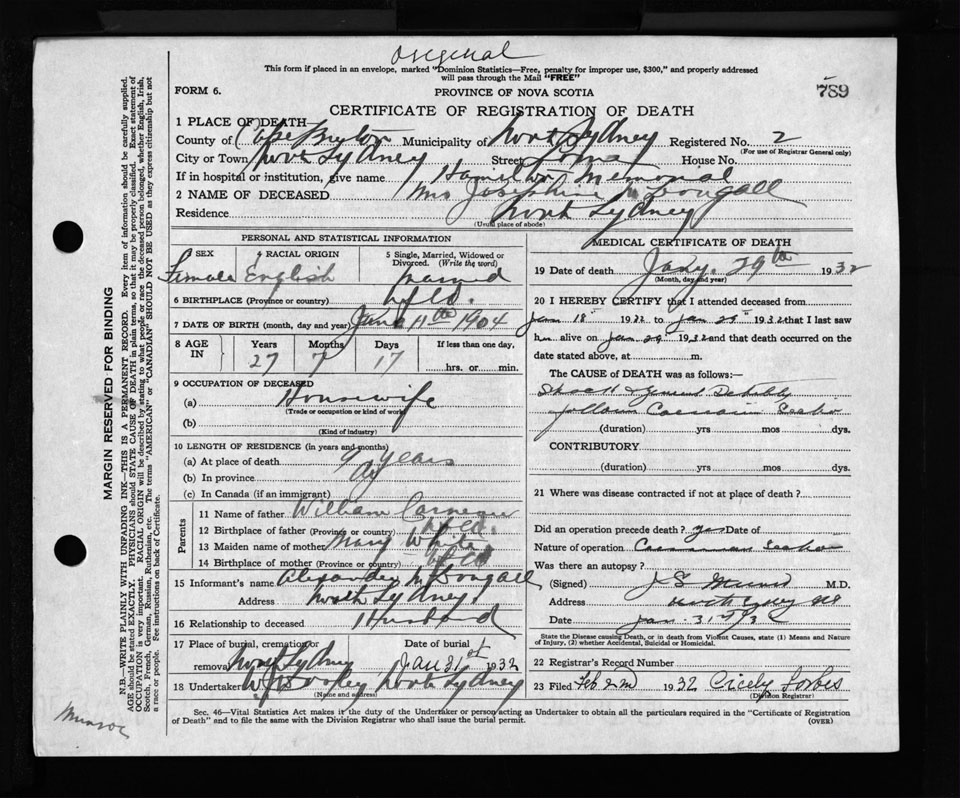 Original
This form if placed in an envelope, marked "Dominion Statistics—Free, penalty for improper use, $300," and properly addressed
will pass through the Mail "FREE"
FORM 6.
PROVINCE OF NOVA SCOTIA
789
CERTIFICATE OF REGISTRATION OF DEATH
1 PLACE OF DEATH
County of Cape Breton Municipality of North Sydney Registered No. 2
(For use of Registrar General only)
City or Town North Sydney Street House No.
If in hospital or institution, give name Hamilton Memorial
2 NAME OF DECEASED Mrs Josephine McDougall
Residence North Sydney
(Usual place of abode)
PERSONAL AND STATISTICAL INFORMATION
3 SEX 4 RACIAL ORIGIN 5 Single, Married, Widowed or Divorced. (Write the word)
Female English married
6 BIRTHPLACE (Province or country) Nfld.
7 DATE OF BIRTH (month, day and year) June 11th 1904
8 AGE IN Years Months Days If less than one day,
27 7 17 hrs. or min.
9 OCCUPATION OF DECEASED
(a) Housewife
(Trade or occupation or kind of work)
(b)
(Kind of industry)
10 LENGTH OF RESIDENCE (in years and months)
(a) At place of death 9 years
(b) In province
(c) In Canada (if an immigrant)
Parents
11 Name of father William
12 Birthplace of father (Province or country) Nfld.
13 Maiden name of mother Mary White
14 Birthplace of mother (Province or country) Nfld
15 Informant's name Alexander McDougall
Address North Sydney
16 Relationship to deceased Husband
17 Place of burial, cremation or removal North Sydney Date of burial Jan 31st 1932
18 Undertaker North Sydney
(Name and address)
MEDICAL CERTIFICATE OF DEATH
19 Date of death Jany. 29th 1932
(Month, day and year)
20 I HEREBY CERTIFY that I attended deceased from
Jan 18 1932 to Jan 29 1932 that I last saw
her alive on Jan 29 1932 and that death occurred on the
date stated above, at m.
The CAUSE of DEATH was as follows:—
Shock & General Debility
following Caesarian Section
(duration) yrs mos dys.
CONTRIBUTORY
(duration) yrs mos dys.
21 Where was disease contracted if not at place of death?
Did an operation precede death? yes Date of
Nature of operation Caesarian Section
Was there an autopsy?
(Signed) M.D.
Address North Sydney NS
Date Jan. 31st / 32
State the Disease causing Death, or in death from Violent Causes, state (1) Means and Nature
of Injury, (2) whether Accidental, Suicidal or Homicidal.
22 Registrar's Record Number
23 Filed Feb 2nd 1932 Cicely Forbes
(Division Registrar)
Sec. 46—Vital Statistics Act makes it the duty of the Undertaker or person acting as Undertaker to obtain all the particulars required in the "Certificate of Registration
of Death" and to file the same with the Division Registrar who shall issue the burial permit.
(OVER)
MARGIN RESERVED FOR BINDING
N.B.—WRITE PLAINLY WITH UNFADING INK—THIS IS A PERMANENT RECORD. Every item of information should be carefully supplied.
AGE should be stated EXACTLY. PHYSICIANS should STATE CAUSE OF DEATH in plain terms, so that it may be properly classified. Exact statement of
OCCUPATION is very important. RACIAL ORIGIN will be described by stating to what people or race the deceased person belonged, whether English, Irish,
Scotch, French, German, Russian, Ruthenian, etc. The terms "AMERICAN" or "CANADIAN" SHOULD NOT BE USED as they express citizenship but not
a race or people. See instructions on back of Certificate.
Munroe